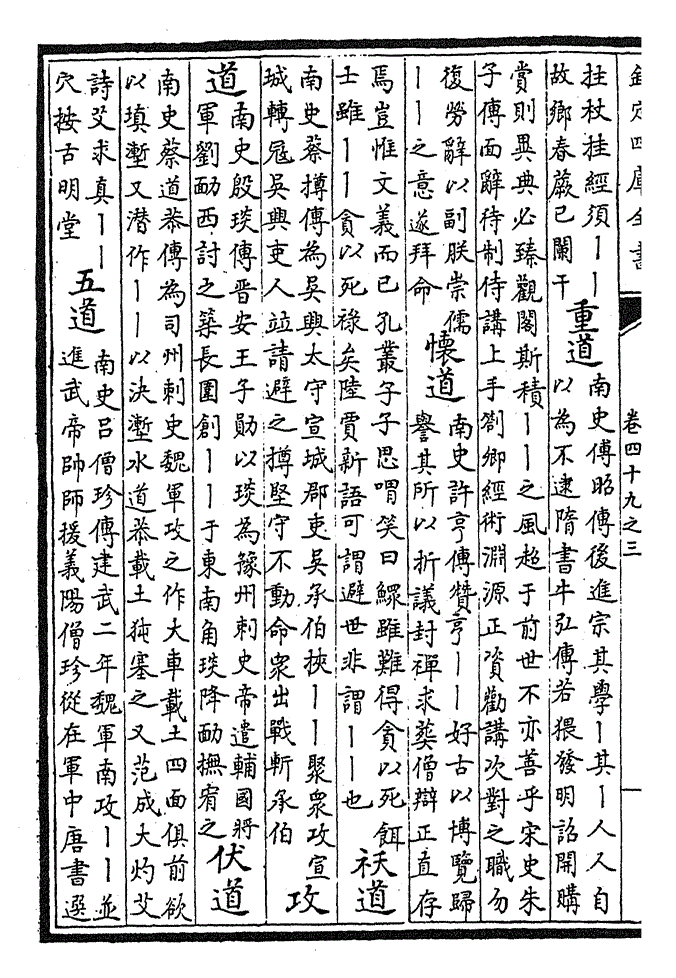 欽定四庫全書
卷四十九之三
拄杖挂經須丨丨
故鄉春蕨已闌干
重道
南史傅昭傳後進宗其學丨其丨人人自
以為不逮隋書牛弘傳若猥發明詔開購
賞則異典必臻觀閣斯積丨丨之風超于前世不亦善乎宋史朱
子傳面辭待制侍講上手劄卿經術淵源正資勸講次對之職勿
復勞辭以副朕崇儒
丨丨之意遂拜命
懷道
南史許亨傳贊亨丨丨好古以博覽歸
譽其所以折議封禪求葬僧辯正直存
焉豈惟文義而已孔叢子子思喟笑曰鰥雖難得貪以死餌
士雖丨丨貪以死祿矣陸賈新語可謂避世非謂丨丨也
祅道
南史蔡撙傳為吳興太守宣城郡吏吳承伯挾丨丨聚衆攻宣
城轉冦吳興吏人竝請避之撙堅守不動命衆出戰斬承伯
攻
道
南史殷琰傳晉安王子勛以琰為豫州刺史帝遣輔國將
軍劉勔西討之築長圍創丨丨于東南角琰降勔撫宥之
伏道
南史蔡道恭傳為司州刺史魏軍攻之作大車載土四面俱前欲
以填塹又潜作丨丨以決塹水道恭載土㹠塞之又范成大灼艾
詩艾求真丨丨
穴按古明堂
五道
南史呂僧珍傳建武二年魏軍南攻丨丨並
進武帝帥師援義陽僧珍從在軍中唐書選